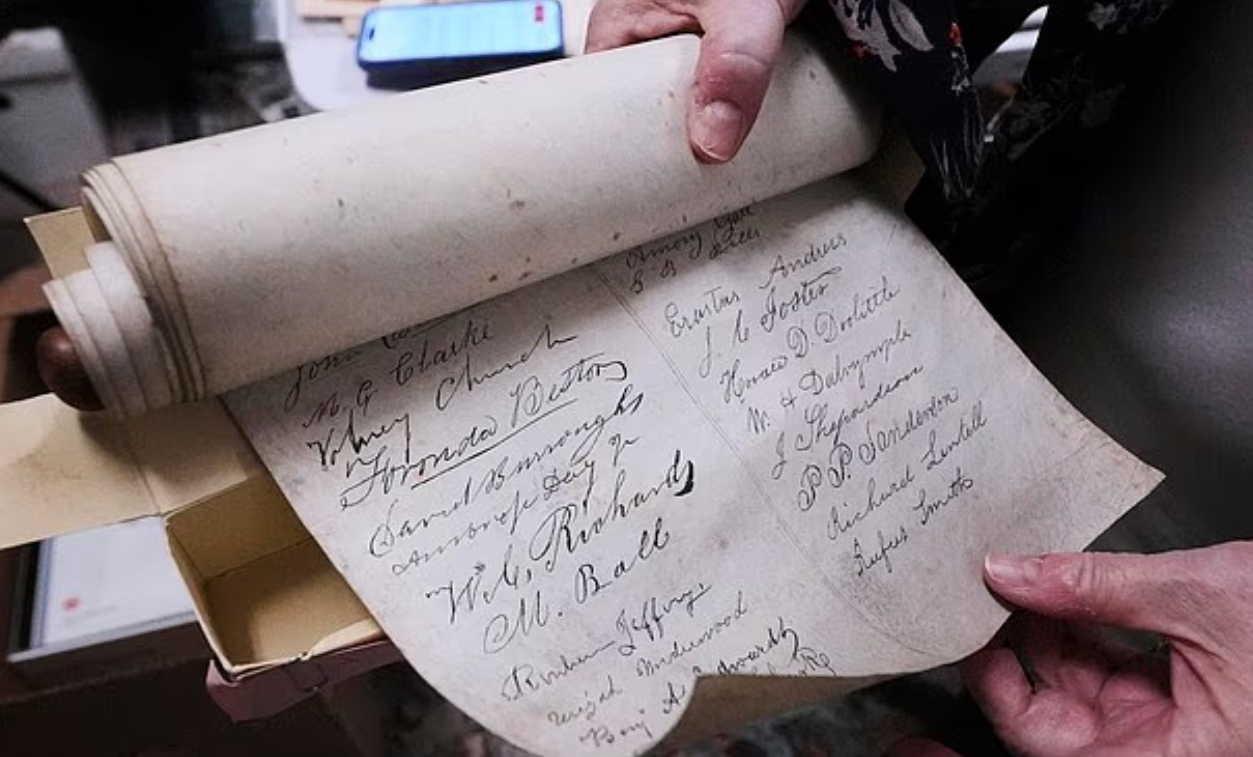 John
N. G. Clarke
Volney Church
Foronda Bestor
Daniel Burroughs
Ambrose Day Jr
W. C. Richards
M. Ball
Reuben Jeffrey
Underwood
Benj A. Edwards
Amory Gale
S B
Erastus Andrews
J. C. Foster
Horace D. Doolittle
W. H Dalrymple
J Sheopardson
P. P. Sanderson
Richard Lentell
Rufus Smith